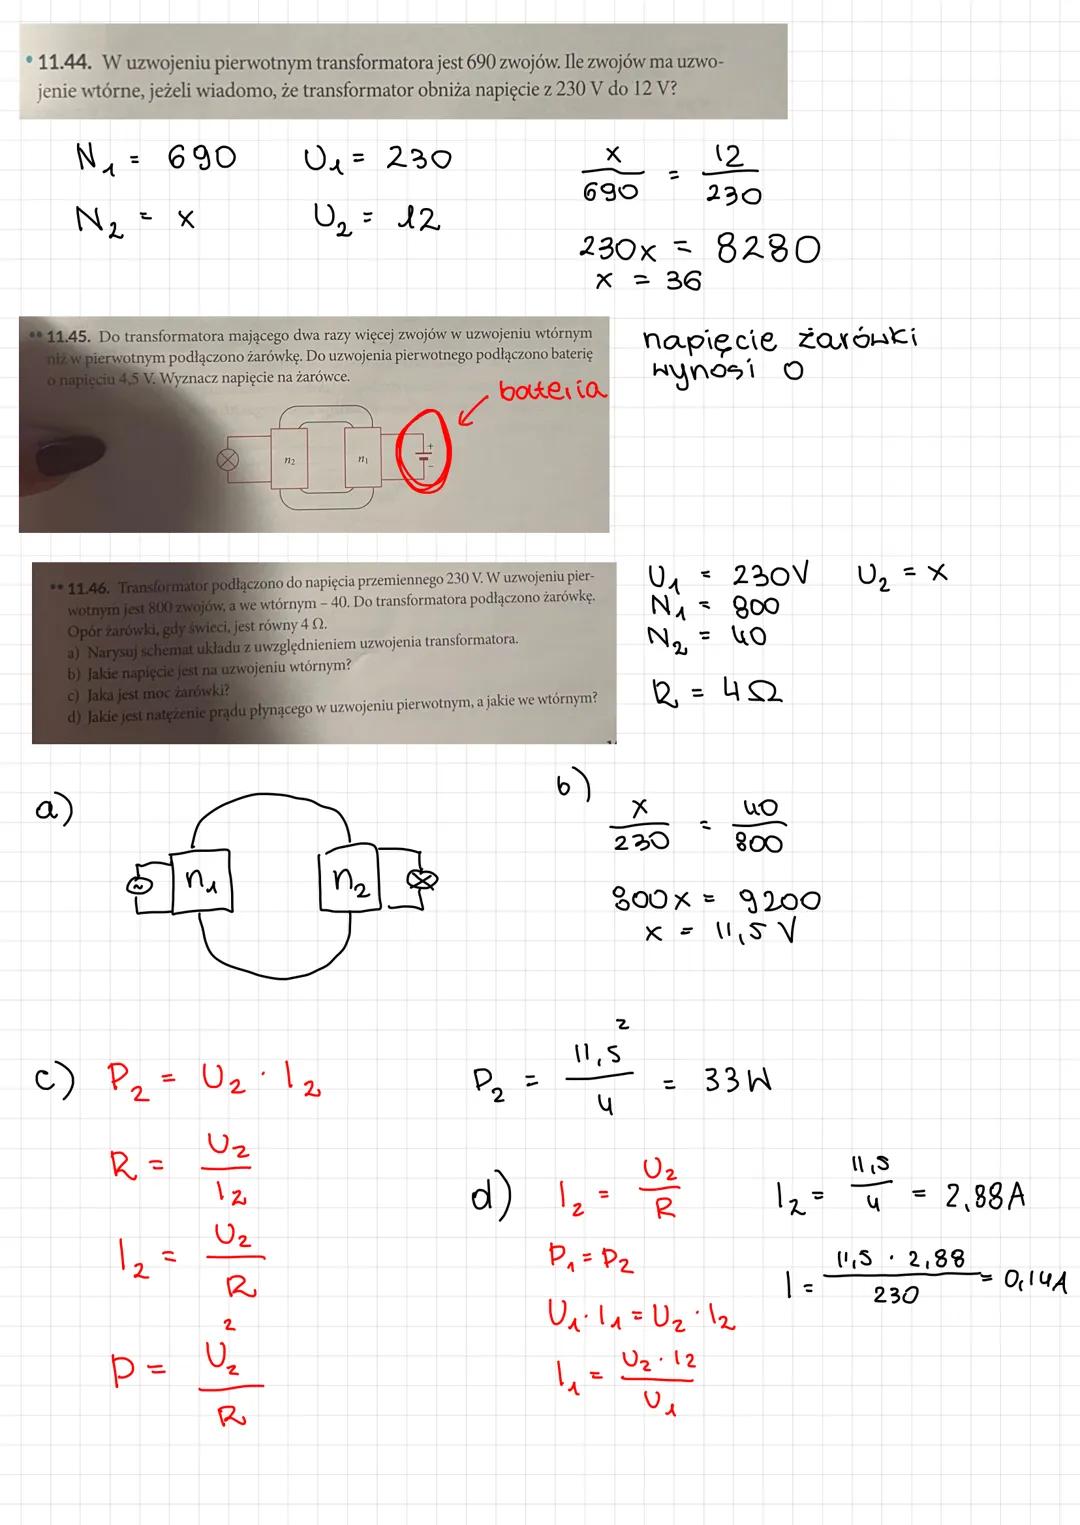 • 11.44. W uzwojeniu pierwotnym transformatora jest 690 zwojów. Ile zwojów ma uzwo-
jenie wtórne, jeżeli wiadomo, że transformator obniża napięcie z 230 V do 12 V?
N₁ = 690 U₁ = 230
N₂ = x U₂ = 12
x/690 = 12/230
230x = 8280
x = 36
•• 11.45. Do transformatora mającego dwa razy więcej zwojów w uzwojeniu wtórnym
niż w pierwotnym podłączono żarówkę. Do uzwojenia pierwotnego podłączono baterię
o napięciu 4,5 V. Wyznacz napięcie na żarówce.
bateria
n₂ n₁ + −
napięcie żarówki
wynosi 0
•• 11.46. Transformator podłączono do napięcia przemiennego 230 V. W uzwojeniu pier-
wotnym jest 800 zwojów, a we wtórnym – 40. Do transformatora podłączono żarówkę.
Opór żarówki, gdy świeci, jest równy 4 Ω.
a) Narysuj schemat układu z uwzględnieniem uzwojenia transformatora.
b) Jakie napięcie jest na uzwojeniu wtórnym?
c) Jaka jest moc żarówki?
d) Jakie jest natężenie prądu płynącego w uzwojeniu pierwotnym, a jakie we wtórnym?
U₁ = 230V U₂ = x
N₁ = 800
N₂ = 40
R = 4Ω
a)
~ n₁ n₂
b)
x/230 = 40/800
800x = 9200
x = 11,5 V
c) P₂ = U₂ · I₂
R = U₂/I₂
I₂ = U₂/R
P = U₂²/R
P₂ = 11,5²/4 = 33W
d) I₂ = U₂/R
P₁ = P₂
U₁·I₁ = U₂·I₂
I₁ = U₂·I₂/U₁
I₂ = 11,5/4 = 2,88A
I = 11,5 · 2,88/230 = 0,14A